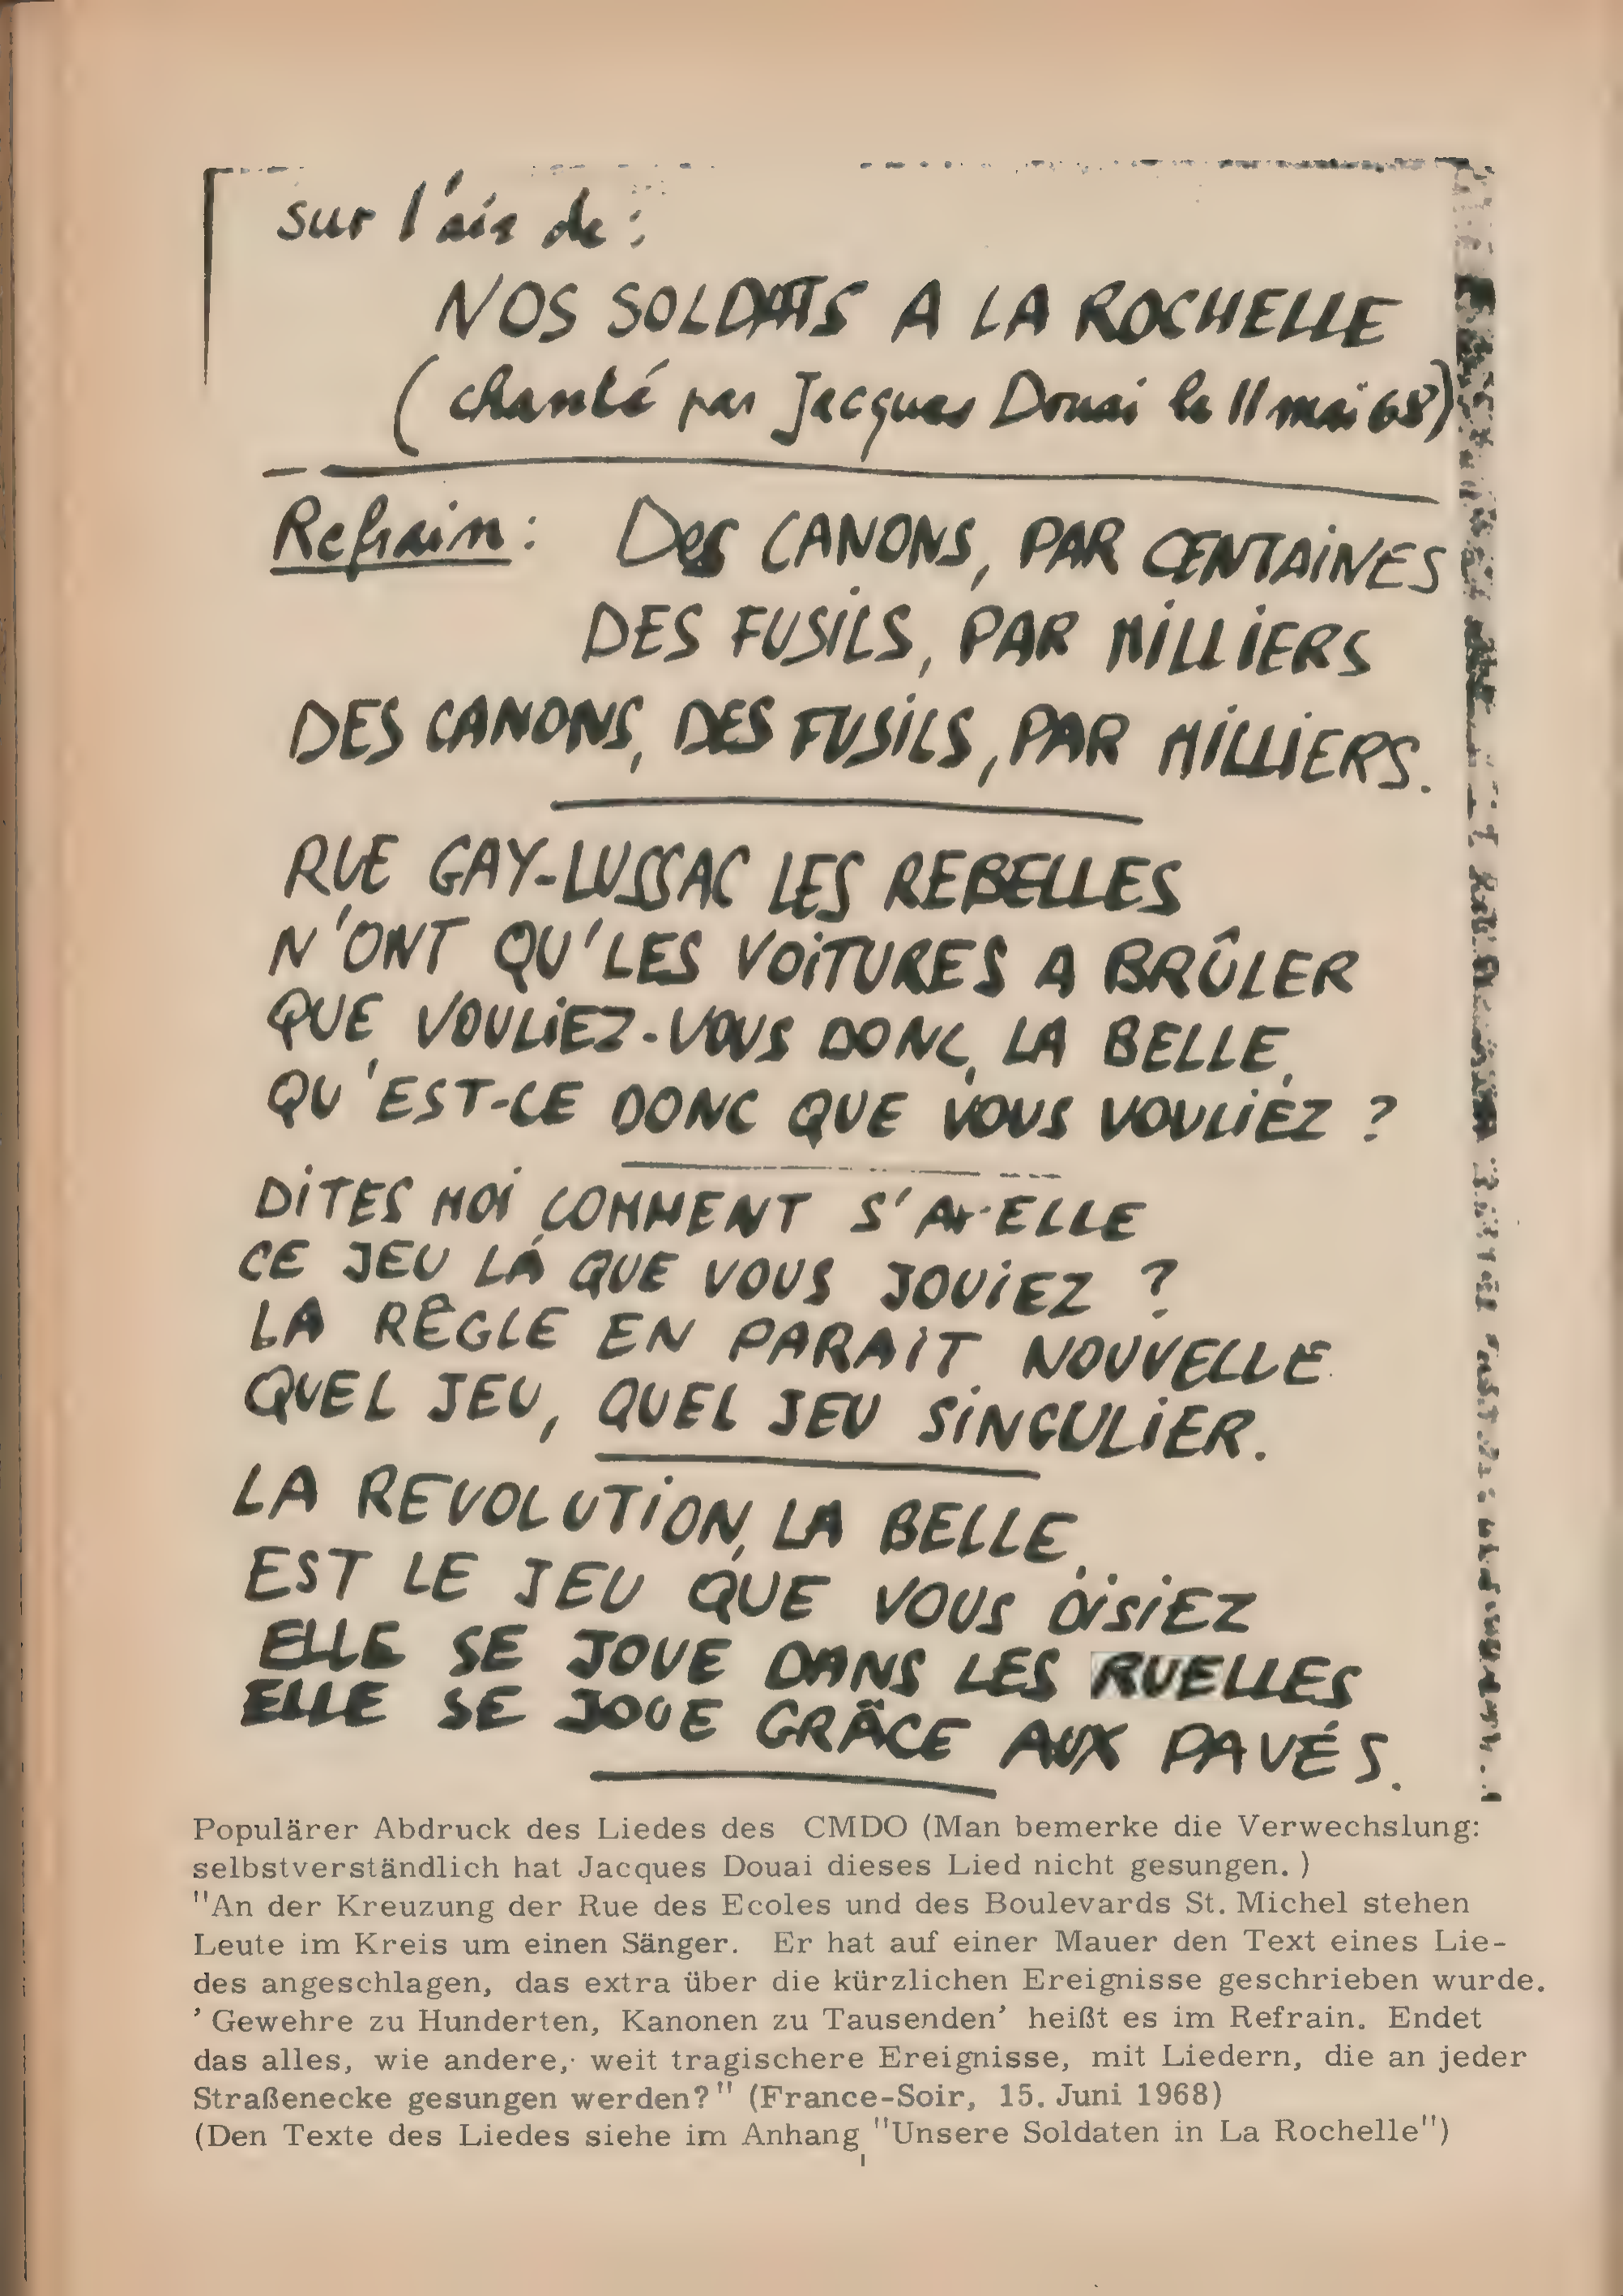 sur l'air de :
NOS SOLDATS A LA ROCHELLE
(chanté par Jacques Douai le 11 mai 68)
Refrain : Des CANONS, PAR CENTAINES
DES FUSILS, PAR MILLIERS
DES CANONS, DES FUSILS, PAR MILLIERS.
RUE GAY-LUSSAC LES REBELLES
N'ONT QU'LES VOITURES A BRÛLER
QUE VOULIEZ-VOUS DONC, LA BELLE,
QU'EST-CE DONC QUE VOUS VOULIEZ ?
DITES MOI COMMENT
CE JEU LÀ QUE VOUS JOUIEZ ?
LA RÊGLE EN PARAIT NOUVELLE
QUEL JEU, QUEL JEU SINGULIER.
LA REVOLUTION, LA BELLE,
EST LE JEU QUE VOUS
ELLE SE JOUE DANS LES RUELLES
ELLE SE JOUE GRÂCE AUX PAVÉS.
Populärer Abdruck des Liedes des CMDO (Man bemerke die Verwechslung:
selbstverständlich hat Jacques Douai dieses Lied nicht gesungen.)
"An der Kreuzung der Rue des Ecoles und des Boulevards St. Michel stehen
Leute im Kreis um einen Sänger. Er hat auf einer Mauer den Text eines Lie-
des angeschlagen, das extra über die kürzlichen Ereignisse geschrieben wurde.
'Gewehre zu Hunderten, Kanonen zu Tausenden' heißt es im Refrain. Endet
das alles, wie andere, weit tragischere Ereignisse, mit Liedern, die an jeder
Straßenecke gesungen werden?" (France-Soir, 15. Juni 1968)
(Den Texte des Liedes siehe im Anhang "Unsere Soldaten in La Rochelle")